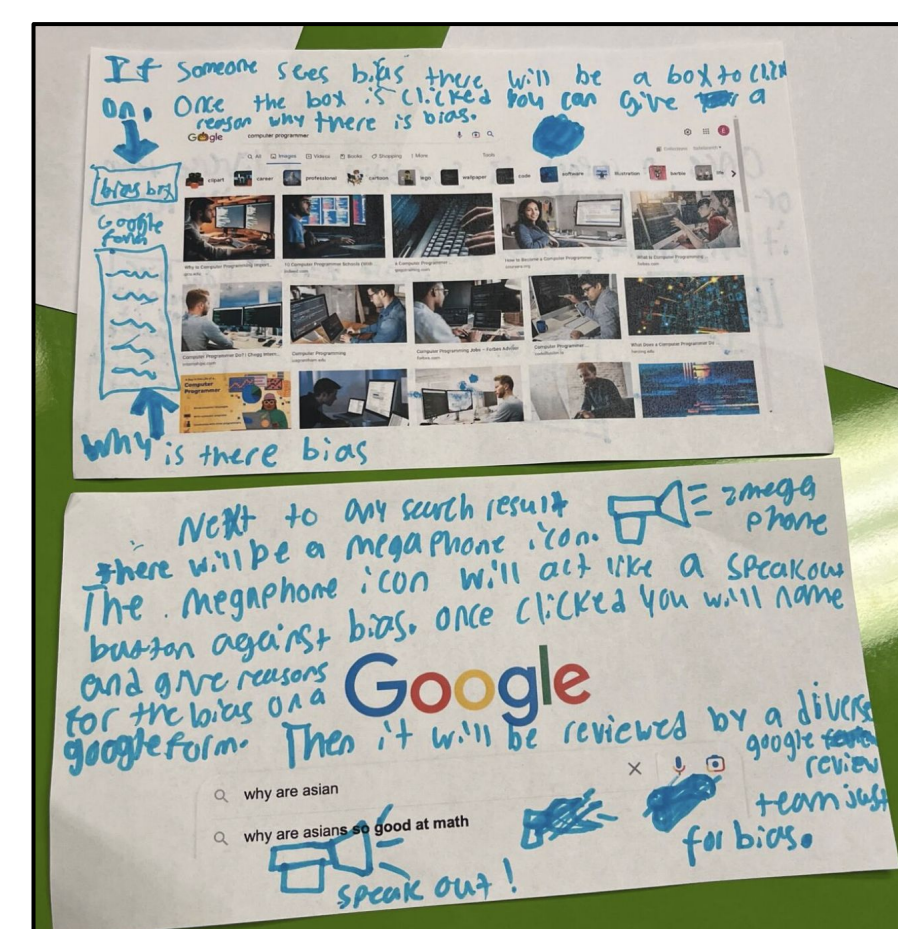 If Someone sees bias there will be a box to click
on. Once the box is clicked you can give a
reason why there is bias.
Google
computer programmer
All Images Videos Books Shopping More Tools
clipart career professional cartoon logo wallpaper code software illustration barbie life
bias box
Google
form
Why is Computer Programming Import...
10 Computer Programmer Schools
A Computer Programmer ...
How to Become a Computer Programmer
What is Computer Programming
Computer Programmer Do? | Chegg
Computer Programming
Computer Programming Jobs – Forbes Advisor
Computer Programmer ...
What Does a Computer Programmer Do
Computer
Programmer
Why is there bias
Next to any search result
there will be a megaphone icon.
mega
phone
The megaphone icon will act like a speakout
button against bias. once clicked you will name
and give reasons
for the bias on a
google form. Then it will be reviewed by a diverse
google
review
team just
for bias.
Google
why are asian
why are asians so good at math
speak out!